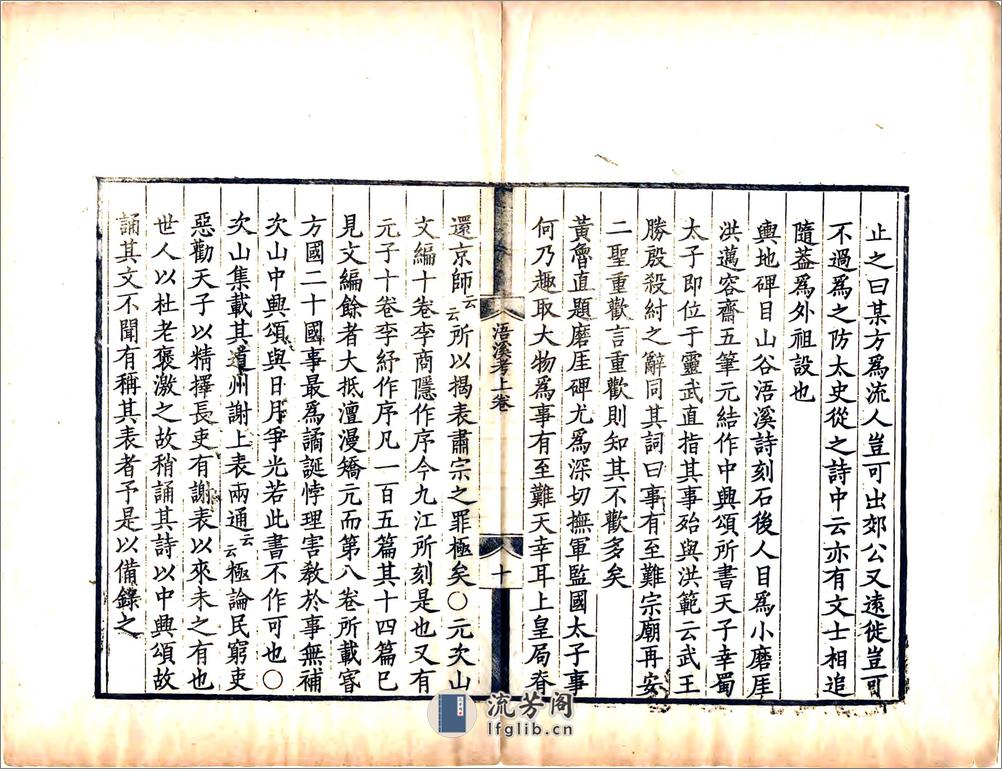 止之曰某方爲流人豈可出郊公又遠徙豈可
不過爲之防太史從之詩中云亦有文士相追
隨葢爲外祖設也
輿地碑目山谷浯溪詩刻石後人目爲小磨厓
洪邁容齋五筆元結作中興頌所書天子幸蜀
太子即位于靈武直指其事殆與洪範云武王
勝殷殺紂之辭同其詞曰事有至難宗廟再安
二聖重歡言重歡則知其不歡多矣
黃魯直題磨厓碑尤爲深切撫軍監國太子事
何乃趣取大物爲事有至難天幸耳上皇局脊
浯溪考上卷
十
還京師云云所以揭表肅宗之罪極矣○元次山
文編十卷李商隱作序今九江所刻是也又有
元子十卷李紓作序凡一百五篇其十四篇已
見文編餘者大抵澶漫矯亢而第八卷所載𥧌
方國二十國事最爲譎誕悖理害敎於事無補
次山中興頌與日月爭光若此書不作可也○
次山集載其道州謝上表兩通云云極論民窮吏
惡勸天子以精擇長吏有謝表以來未之有也
世人以杜老褒激之故稍誦其詩以中興頌故
誦其文不聞有稱其表者予是以備錄之
流芳阁
lfglib.cn